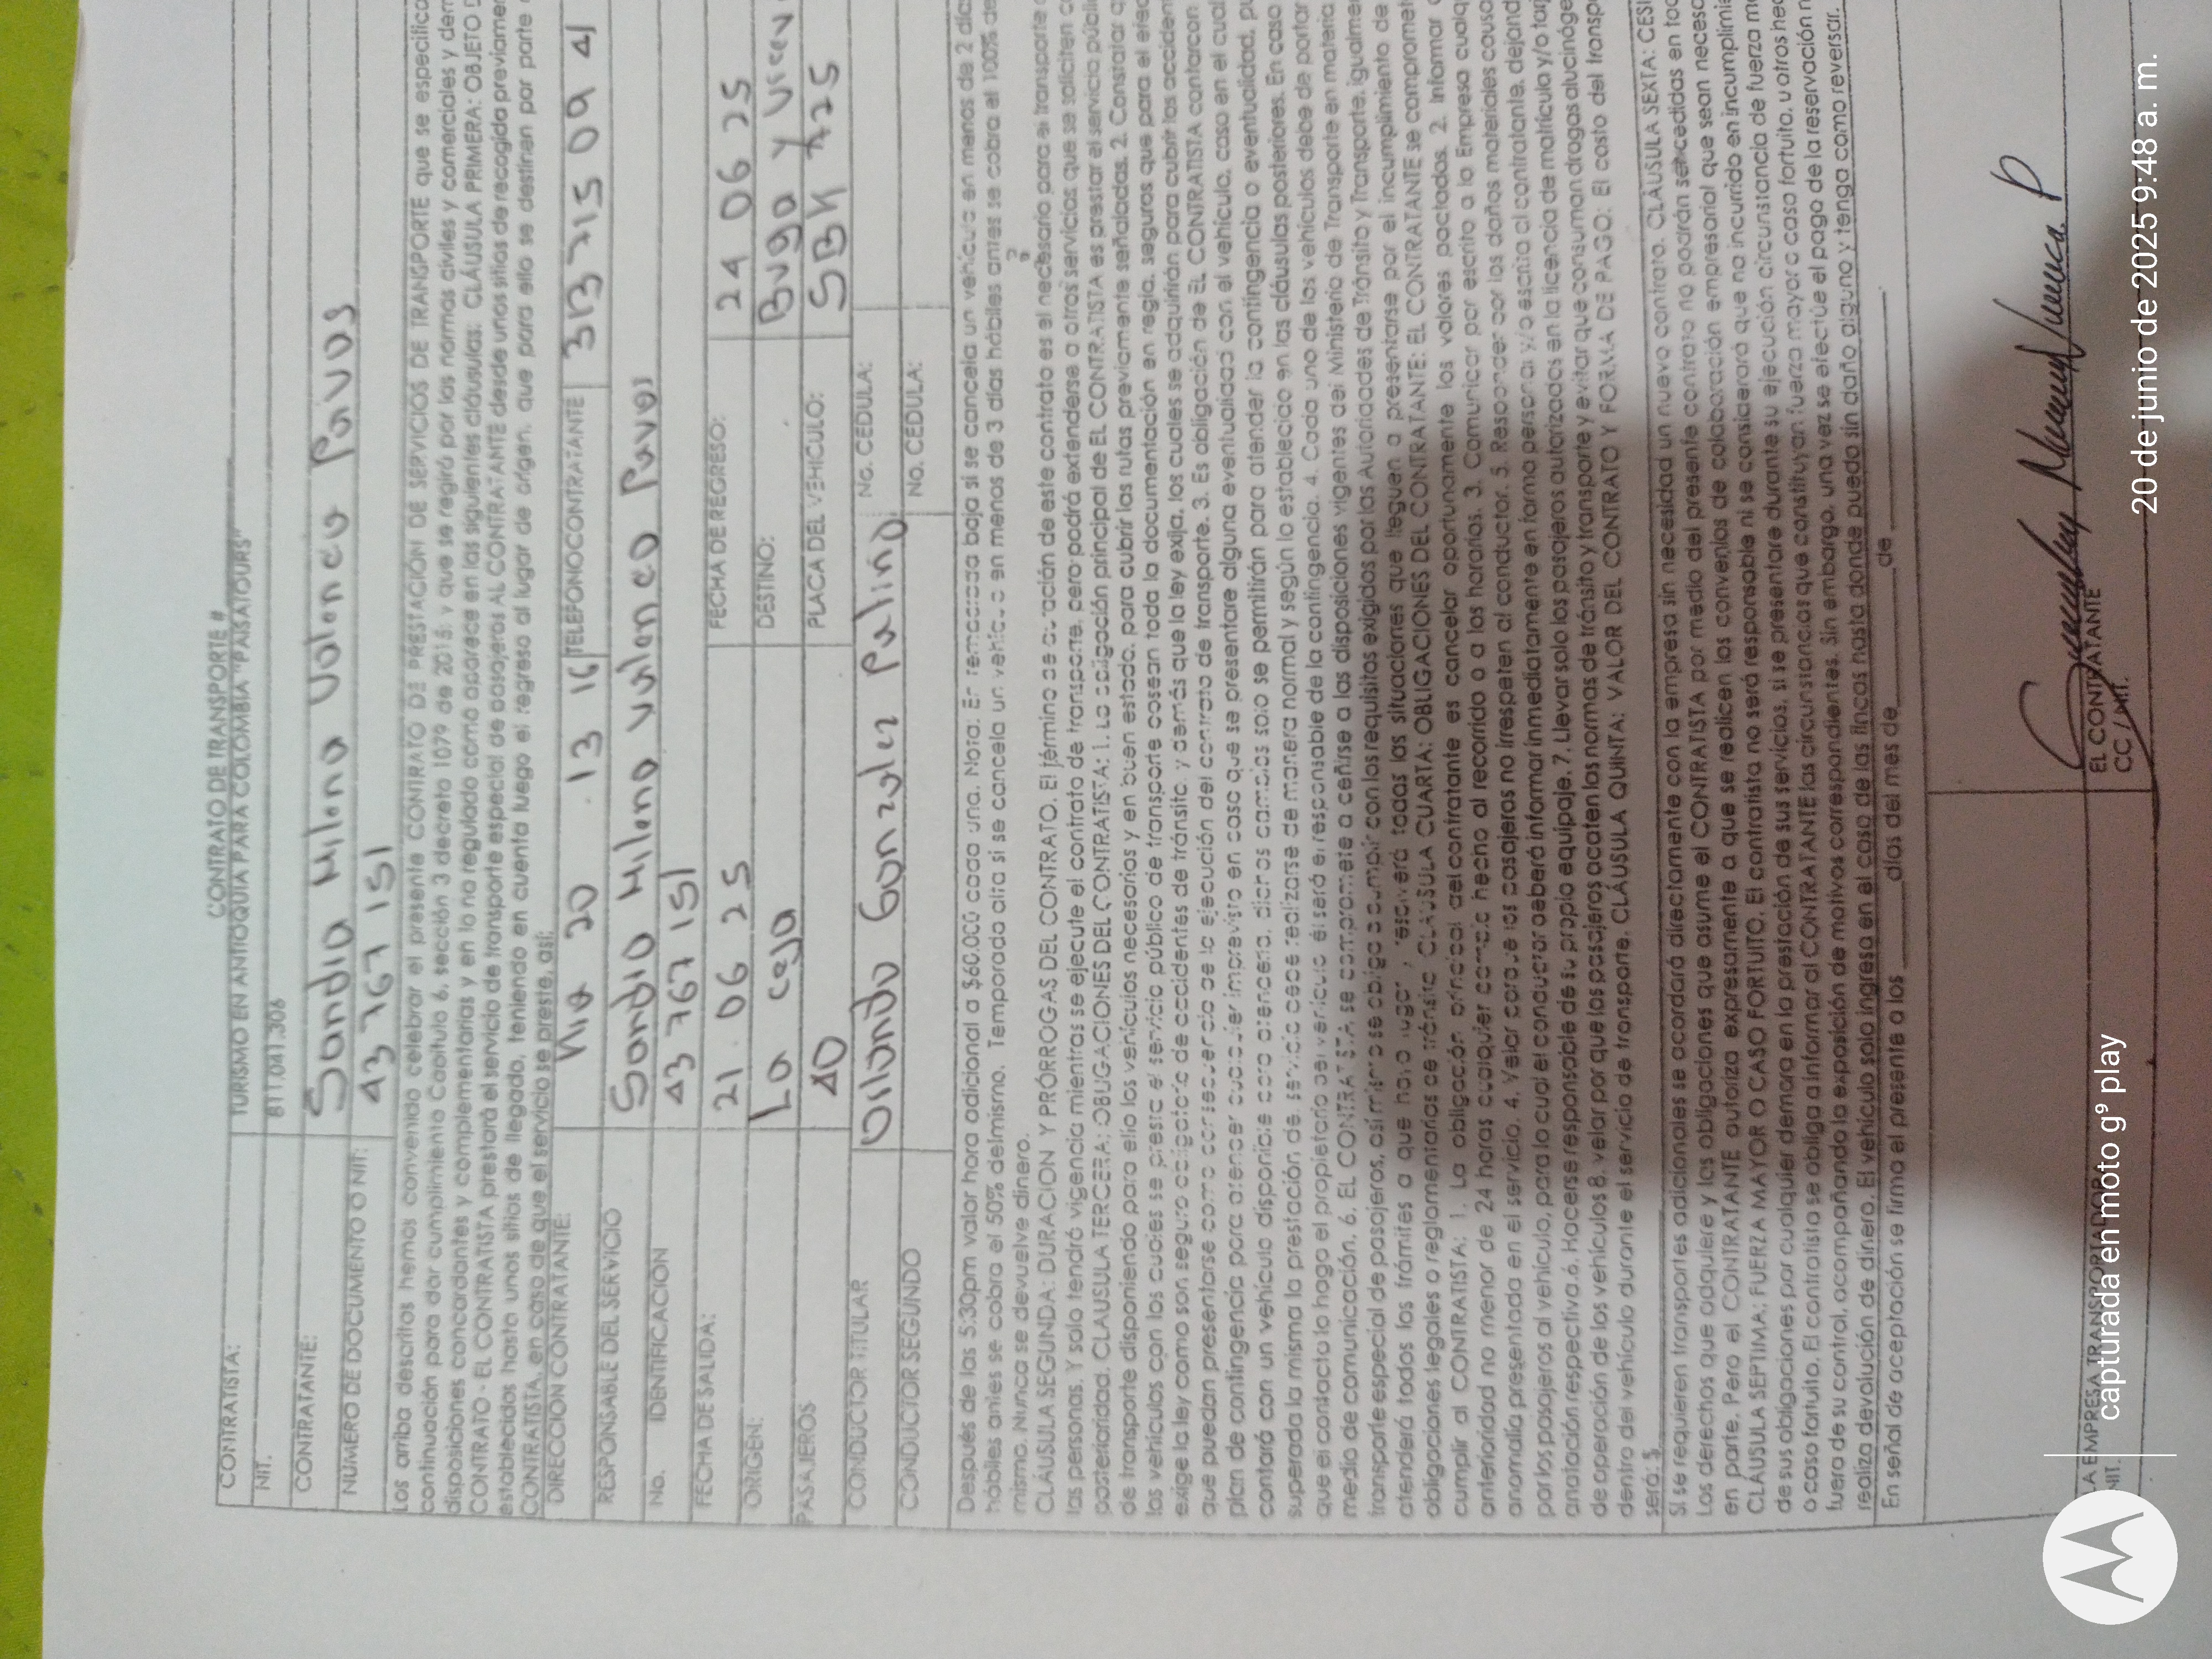 CONTRATO DE TRANSPORTE #
CONTRATISTA: TURISMO EN ANTIOQUIA PARA COLOMBIA "PAISATOURS"
NIT. 811.041.306
CONTRATANTE: Sandra Milena Valencia Pavas
NUMERO DE DOCUMENTO O NIT: 43 767 151
Los arriba descritos hemos convenido celebrar el presente CONTRATO DE PRESTACIÓN DE SERVICIOS DE TRANSPORTE que se especifica
continuación para dar cumplimiento Capitulo 6, sección 3 decreto 1079 de 2015; y que se regirá por las normas civiles y comerciales y dem
disposiciones concordantes y complementarias y en lo no regulado como aparece en las siguientes cláusulas: CLÁUSULA PRIMERA: OBJETO D
CONTRATO - EL CONTRATISTA prestará el servicio de transporte especial de pasajeros AL CONTRATANTE desde unos sitios de recogida previamen
establecidos hasta unos sitios de llegada, teniendo en cuenta luego el regreso al lugar de origen, que para ello se destinen por parte
CONTRATISTA, en caso de que el servicio se preste, así:
DIRECCIÓN CONTRATANTE: 20 13 16 TELEFONOCONTRATANTE 313 715 09 41
RESPONSABLE DEL SERVICIO Sandra Milena Valencia Pavas
No. IDENTIFICACIÓN 43 767 151
FECHA DE SALIDA: 21 . 06 25 FECHA DE REGRESO: 24 06 25
ORIGEN: La ceja DESTINO: Buga y
PASAJEROS 40 PLACA DEL VEHICULO:
CONDUCTOR TITULAR Gonzalez No. CEDULA:
CONDUCTOR SEGUNDO No. CEDULA:
Después de las 5:30pm valor hora adicional a $60.000 cada una. Nota: En temporada baja si se cancela un vehículo en menos de 2 días
hábiles antes se cobra el 50% del mismo. Temporada alta si se cancela un vehículo en menos de 3 días hábiles antes se cobra el 100% de
mismo. Nunca se devuelve dinero.
CLÁUSULA SEGUNDA: DURACION Y PRÓRROGAS DEL CONTRATO. El término de duración de este contrato es el necesario para el transporte
las personas. Y solo tendrá vigencia mientras se ejecute el contrato de transporte, pero podrá extenderse a otros servicios que se soliciten c
posterioridad. CLAUSULA TERCERA: OBLIGACIONES DEL CONTRATISTA: 1. La obligación principal de EL CONTRATISTA es prestar el servicio públi
de transporte disponiendo para ello los vehículos necesarios y en buen estado, para cubrir las rutas previamente señaladas. 2. Constatar q
los vehículos con los cuales se preste el servicio público de transporte posean toda la documentación en regla, seguros que para el efec
exige la ley como son seguro obligatorio de accidentes de tránsito, y demás que la ley exija, los cuales se adquirirán para cubrir los acciden
que puedan presentarse como consecuencia de la ejecución del contrato de transporte. 3. Es obligación de EL CONTRATISTA contar con
plan de contingencia para atender cualquier imprevisto en caso que se presentare alguna eventualidad con el vehículo, caso en el cual
contará con un vehículo disponible para atenderla, dichos cambios solo se permitirán para atender la contingencia o eventualidad, pu
superada la misma la prestación del servicio debe realizarse de manera normal y según lo establecido en las cláusulas posteriores. En caso
que el contacto lo haga el propietario del vehículo él será el responsable de la contingencia. 4. Cada uno de los vehículos debe de portar
medio de comunicación. 6. EL CONTRATISTA se compromete a ceñirse a las disposiciones vigentes del Ministerio de Transporte en materia
transporte especial de pasajeros, así mismo se obliga a cumplir con los requisitos exigidos por las Autoridades de Tránsito y Transporte, igualmen
atenderá todos los trámites a que haya lugar y resolverá todas las situaciones que lleguen a presentarse por el incumplimiento de
obligaciones legales o reglamentarias de tránsito CLÁUSULA CUARTA: OBLIGACIONES DEL CONTRATANTE: EL CONTRATANTE se compromet
cumplir al CONTRATISTA: 1. La obligación principal del contratante es cancelar oportunamente los valores pactados. 2. Informar c
anterioridad no menor de 24 horas cualquier cambio hecho al recorrido o a los horarios. 3. Comunicar por escrito a la Empresa cualq
anomalía presentada en el servicio. 4. Velar porque los pasajeros no irrespeten al conductor. 5. Responder por los daños materiales causa
por los pasajeros al vehículo, para lo cual el conductor deberá informar inmediatamente en forma personal y/o escrita al contratante, dejand
anotación respectiva.6. Hacerse responsable de su propio equipaje. 7. Llevar solo los pasajeros autorizados en la licencia de matrícula y/o tarj
de operación de los vehículos 8. velar por que los pasajeros acaten las normas de tránsito y transporte y evitar que consuman drogas alucinóge
dentro del vehículo durante el servicio de transporte. CLÁUSULA QUINTA: VALOR DEL CONTRATO Y FORMA DE PAGO: El costo del transpo
será: $
Si se requieren transportes adicionales se acordará directamente con la empresa sin necesidad un nuevo contrato. CLÁUSULA SEXTA: CESI
Los derechos que adquiere y las obligaciones que asume el CONTRATISTA por medio del presente contrato no podrán ser cedidas en to
en parte. Pero el CONTRATANTE autoriza expresamente a que se realicen los convenios de colaboración empresarial que sean neces
CLÁUSULA SEPTIMA: FUERZA MAYOR O CASO FORTUITO. El contratista no será responsable ni se considerará que no incurrido en incumplimie
de sus obligaciones por cualquier demora en la prestación de sus servicios, si se presentare durante su ejecución circunstancia de fuerza m
o caso fortuito. El contratista se obliga a informar al CONTRATANTE las circunstancias que constituyan: fuerza mayor o caso fortuito, u otros hec
fuera de su control, acompañando la exposición de motivos correspondientes. Sin embargo, una vez se efectúe el pago de la reservación n
realiza devolución de dinero. El vehículo solo ingresa en el caso de las fincas hasta donde pueda sin daño alguno y tenga como reversar.
En señal de aceptación se firma el presente a los ______ días del mes de ____________ de ____________.
LA EMPRESA TRANSPORTADOR EL CONTRATANTE
NIT. CC / NIT.
capturada en moto g⁹ play
20 de junio de 2025 9:48 a. m.